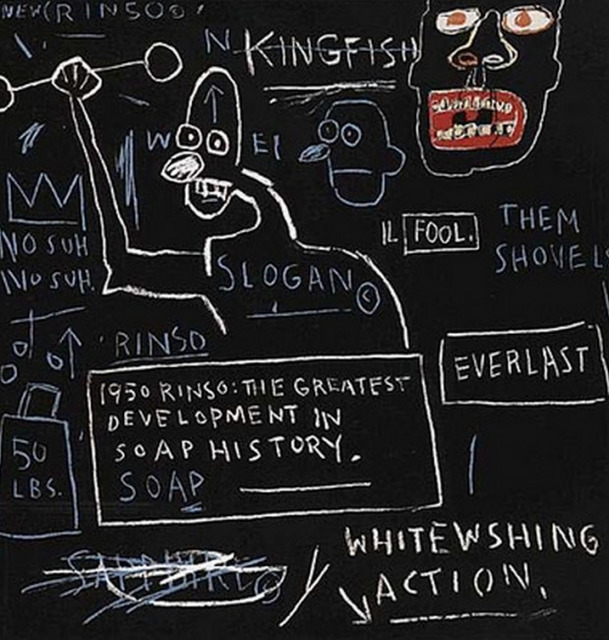 NEW(RINSO©
N KINGFISH
W EI
IL FOOL.
THEM
SHOVELS
NO SUH
NO SUH.
SLOGAN©
RINSO
1950 RINSO: THE GREATEST
DEVELOPMENT IN
SOAP HISTORY.
SOAP
EVERLAST
50
LBS.
SAPPHIRE©
WHITEWSHING
ACTION.